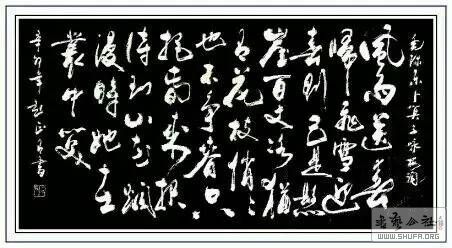 毛泽东卜算子咏梅词
風雨送春
歸飛雪迎
春到已是懸
崖百丈冰猶
有花枝俏々
也不争春只
把春来報
待到山花爛
漫時她在
叢中笑
辛卯年 书
书艺公社
WWW.SHUFA.ORG